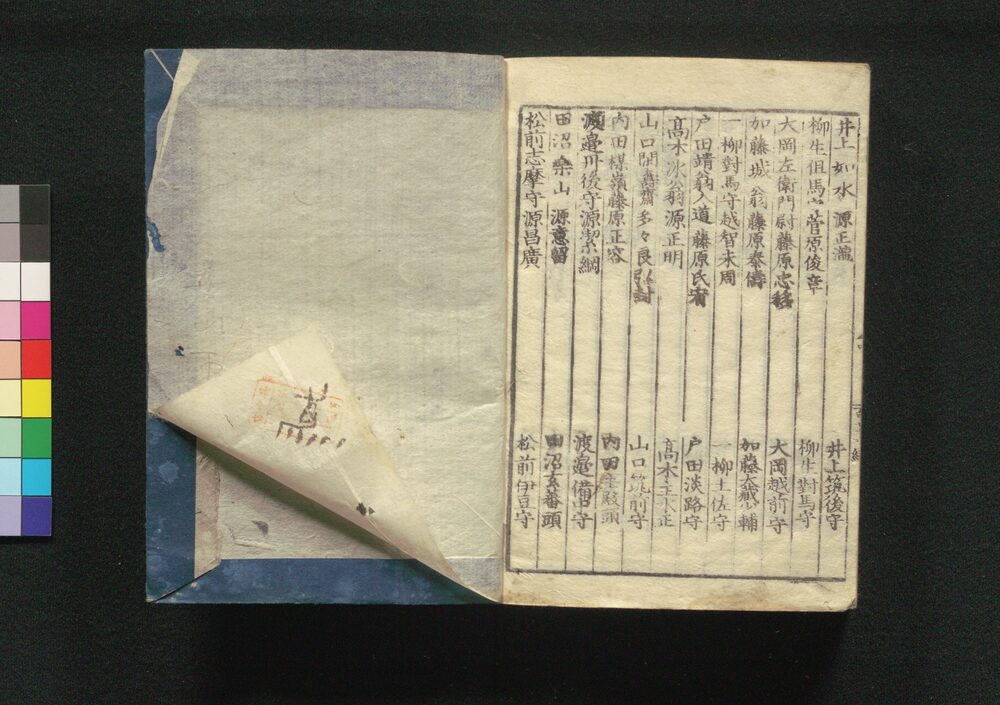 井上如水 源正瀧 井上筑後守
柳生但馬守菅原俊章 柳生對馬守
大岡左衛門尉藤原忠移 大岡越前守
加藤城翁藤原泰儔 加藤大藏少輔
一柳對馬守越智末周 一柳土佐守
戸田靖翁入道藤原氏宥 戸田淡路守
髙木氷翁源正明 髙木主水正
山口閑齋多々良弘封 山口筑前守
内田楳嶺藤原正容 内田主殿頭
渡邉丹後守源潔綱 渡邉備中守
田沼樂山 源意留 田沼玄蕃頭
松前志摩守源昌廣 松前伊豆守